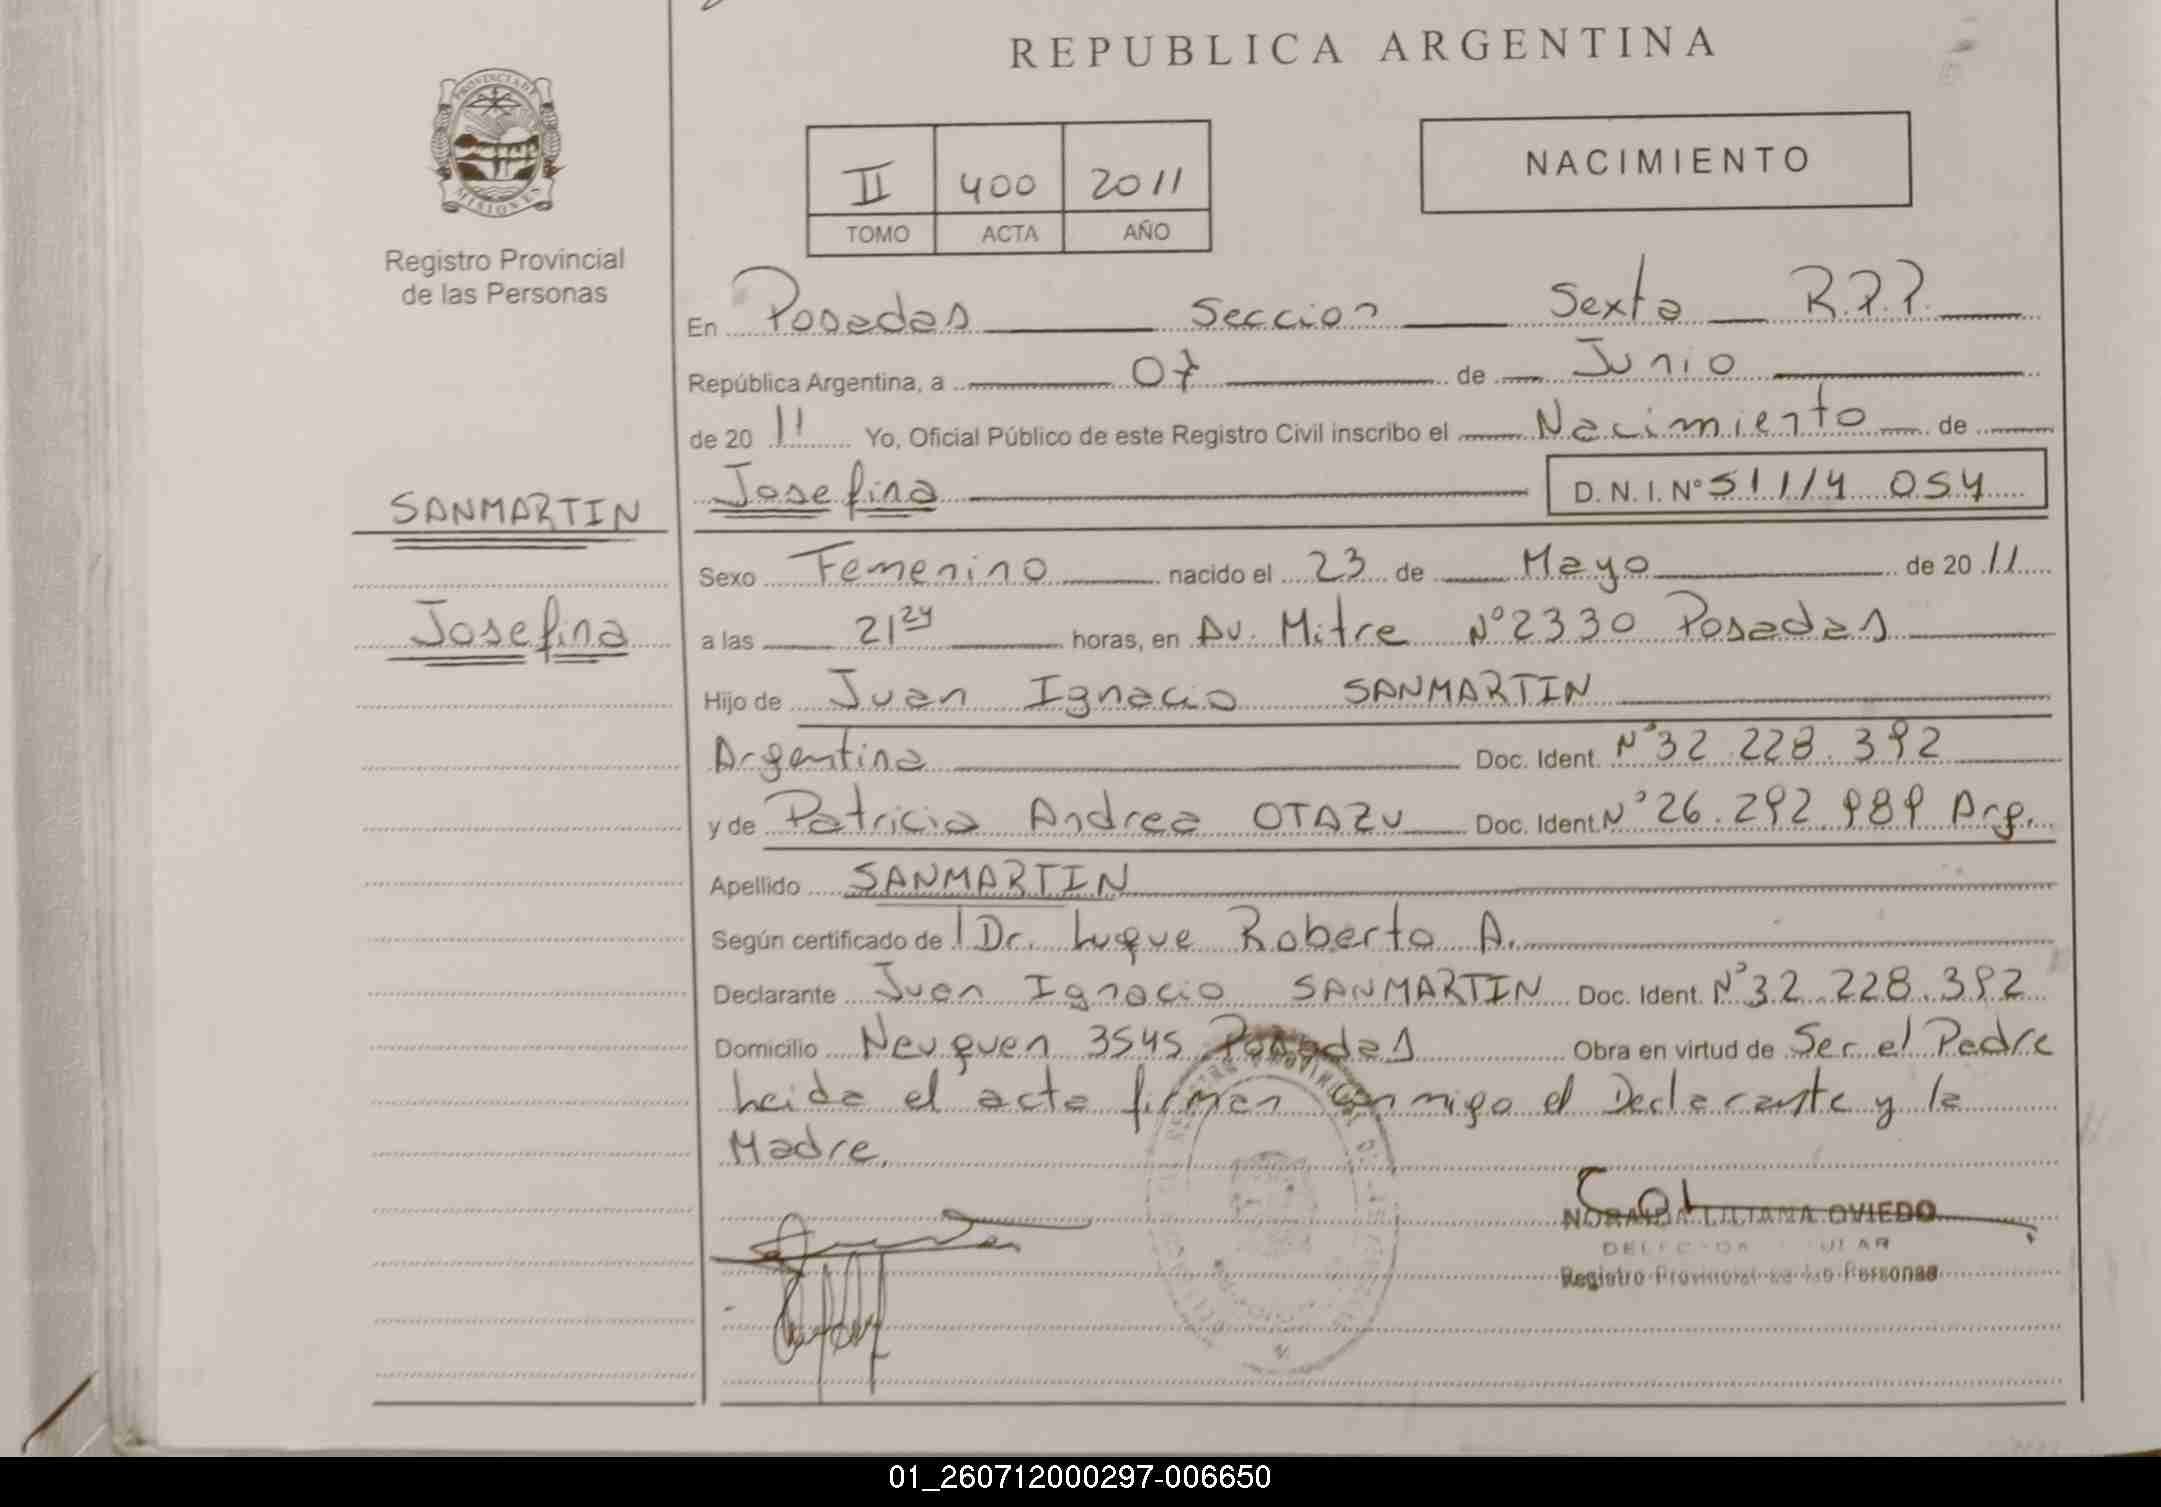 REPUBLICA ARGENTINA
PROVINCIA DE
MISIONES
Registro Provincial
de las Personas
II 400 2011
TOMO ACTA AÑO
NACIMIENTO
En Posadas Seccion Sexta R.P.P.
República Argentina, a 07 de Junio
de 20 11 Yo, Oficial Público de este Registro Civil inscribo el Nacimiento de
Josefina D.N.I.Nº 51114 054
SANMARTIN
Josefina
Sexo Femenino nacido el 23 de Mayo de 20 11
a las 21 24 horas, en Av. Mitre Nº 2330 Posadas
Hijo de Juan Ignacio SANMARTIN
Argentina Doc. Ident. Nº 32.228.392
y de Patricia Andrea OTAZU Doc. Ident. Nº 26.292.989 Arg.
Apellido SANMARTIN
Según certificado de Dr. Luque Roberto A.
Declarante Juan Ignacio SANMARTIN Doc. Ident. Nº 32.228.392
Domicilio Neuquen 3545 Posadas Obra en virtud de Ser el Padre
Leida el acta firman conmigo el Declarante y la
Madre.
NORAIDA LILIANA OVIEDO
Registro Provincial de las Personas
01_260712000297-006650